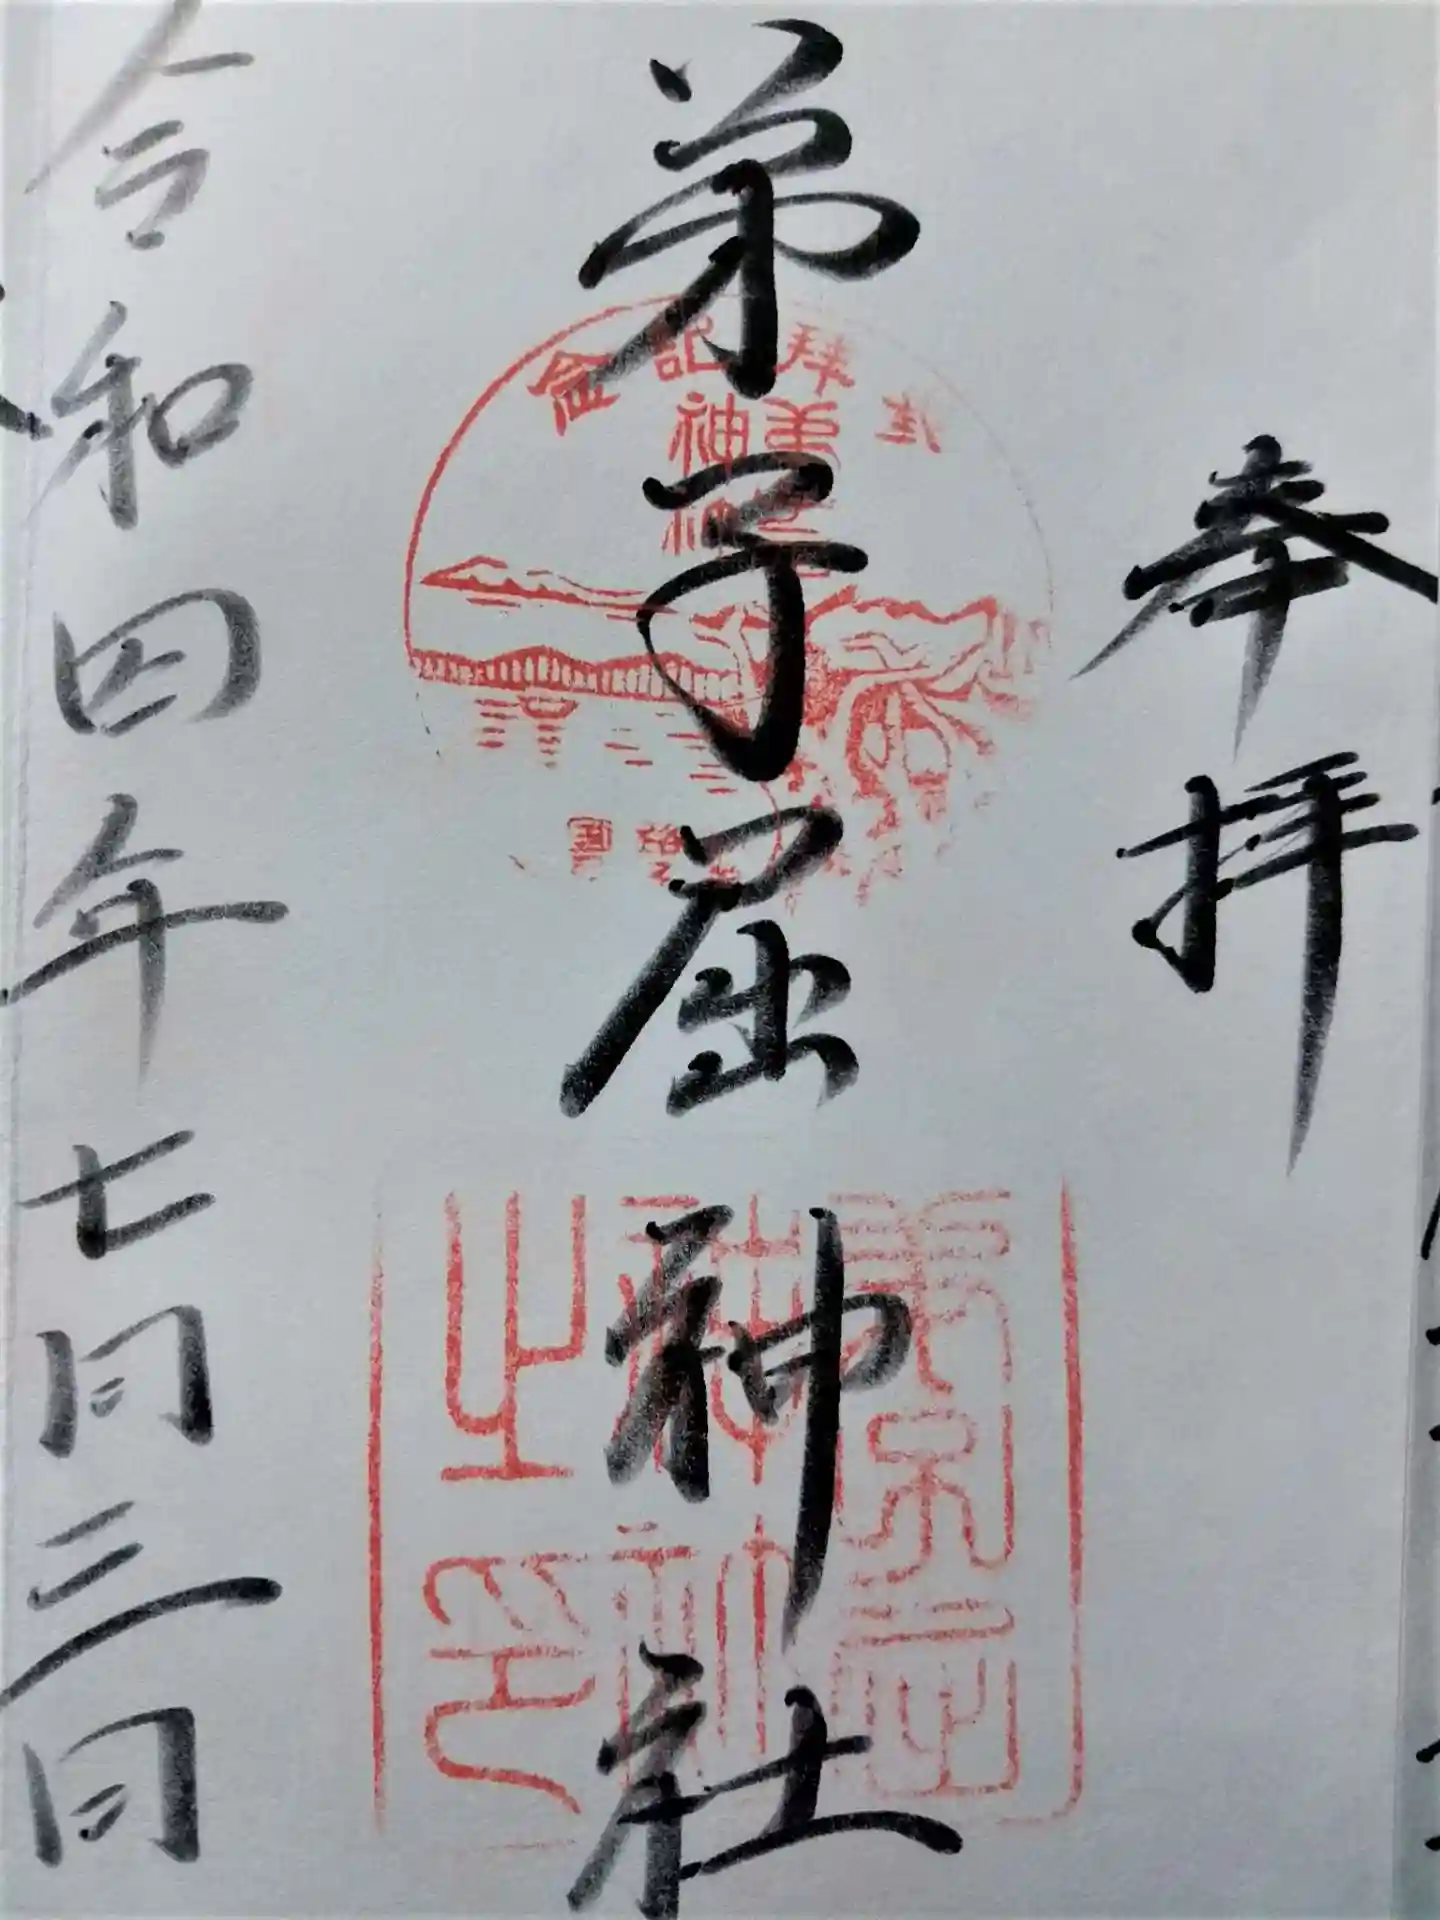 奉拝
弟子屈神社
令和四年七月三日
拝記念
神社
弟子屈
神社
之印